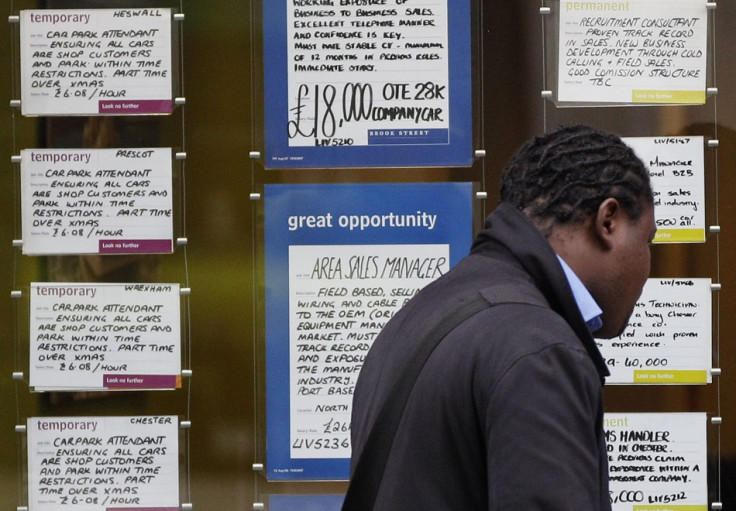 temporary
HESWALL
CAR PARK ATTENDANT
ENSURING ALL CARS
ARE SHOP CUSTOMERS
AND PARK WITHIN TIME
RESTRICTIONS. PART TIME
OVER XMAS
£6.08/HOUR
Look no further
temporary
PRESCOT
CAR PARK ATTENDANT
ENSURING ALL CARS
ARE SHOP CUSTOMERS AND
PARK WITHIN TIME
RESTRICTIONS. PART TIME
OVER XMAS
£6.08/HOUR
Look no further
temporary
WREXHAM
CAR PARK ATTENDANT
ENSURING ALL CARS
ARE SHOP CUSTOMERS AND
PARK WITHIN TIME
RESTRICTIONS. PART TIME
OVER XMAS
£6.08/HOUR
Look no further
temporary
CHESTER
CAR PARK ATTENDANT
ENSURING ALL CARS
ARE SHOP CUSTOMERS
AND PARK WITHIN TIME
RESTRICTIONS. PART
TIME OVER XMAS
£6.08/HOUR
WORKING EXPOSURE OF
BUSINESS TO BUSINESS SALES.
EXCELLENT TELEPHONE MANNER
AND CONFIDENCE IS KEY.
MUST HAVE STABLE CV - MINIMUM
OF 12 MONTHS IN PREVIOUS ROLES.
IMMEDIATE START.
£18,000 OTE 28K
COMPANY CAR
LIV5210
BROOK STREET
great opportunity
AREA SALES MANAGER
FIELD BASED, SELLI
WIRING AND CABLE
TO THE OEM (ORI
EQUIPMENT MAN
MARKET. MUST
TRACK RECORD
AND EXPOSU
THE MANUF
INDUSTRY.
PORT BASE
NORTH
£26
LIV5236
permanent
RECRUITMENT CONSULTANT
PROVEN TRACK RECORD
IN SALES. NEW BUSINESS
DEVELOPMENT THROUGH COLD
CALLING & FIELD SALES.
GOOD COMISSION STRUCTURE
TBC
Look no further
B2B
sales
industry.
500 car
all.
TECHNICIAN
a busy Chester
ce co.
with proven
experience.
40,000
nent
MS HANDLER.
D IN CHESTER.
PREVIOUS CLAIM
EXPERIENCE WITHIN A
COMPANY.
,000 LIV5212